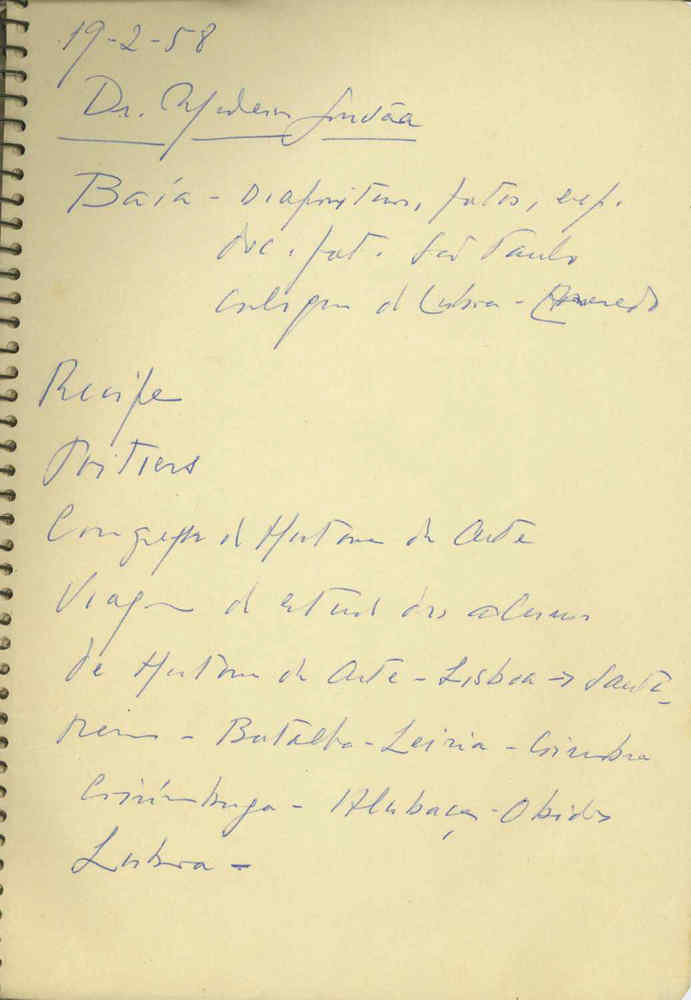 19-2-58
Dr. Medeiros Gouvêa
Baía - Diapositivos, fotos, exp.
doc. fot. São Paulo
de Lisboa - Azevedo
Recife
Poitiers
Congresso de História da Arte
Viagem de estudo dos alunos
de História da Arte - Lisboa → Santa-
rem - Batalha - Leiria - Coimbra
Conímbriga - Alcobaça - Obidos
Lisboa -